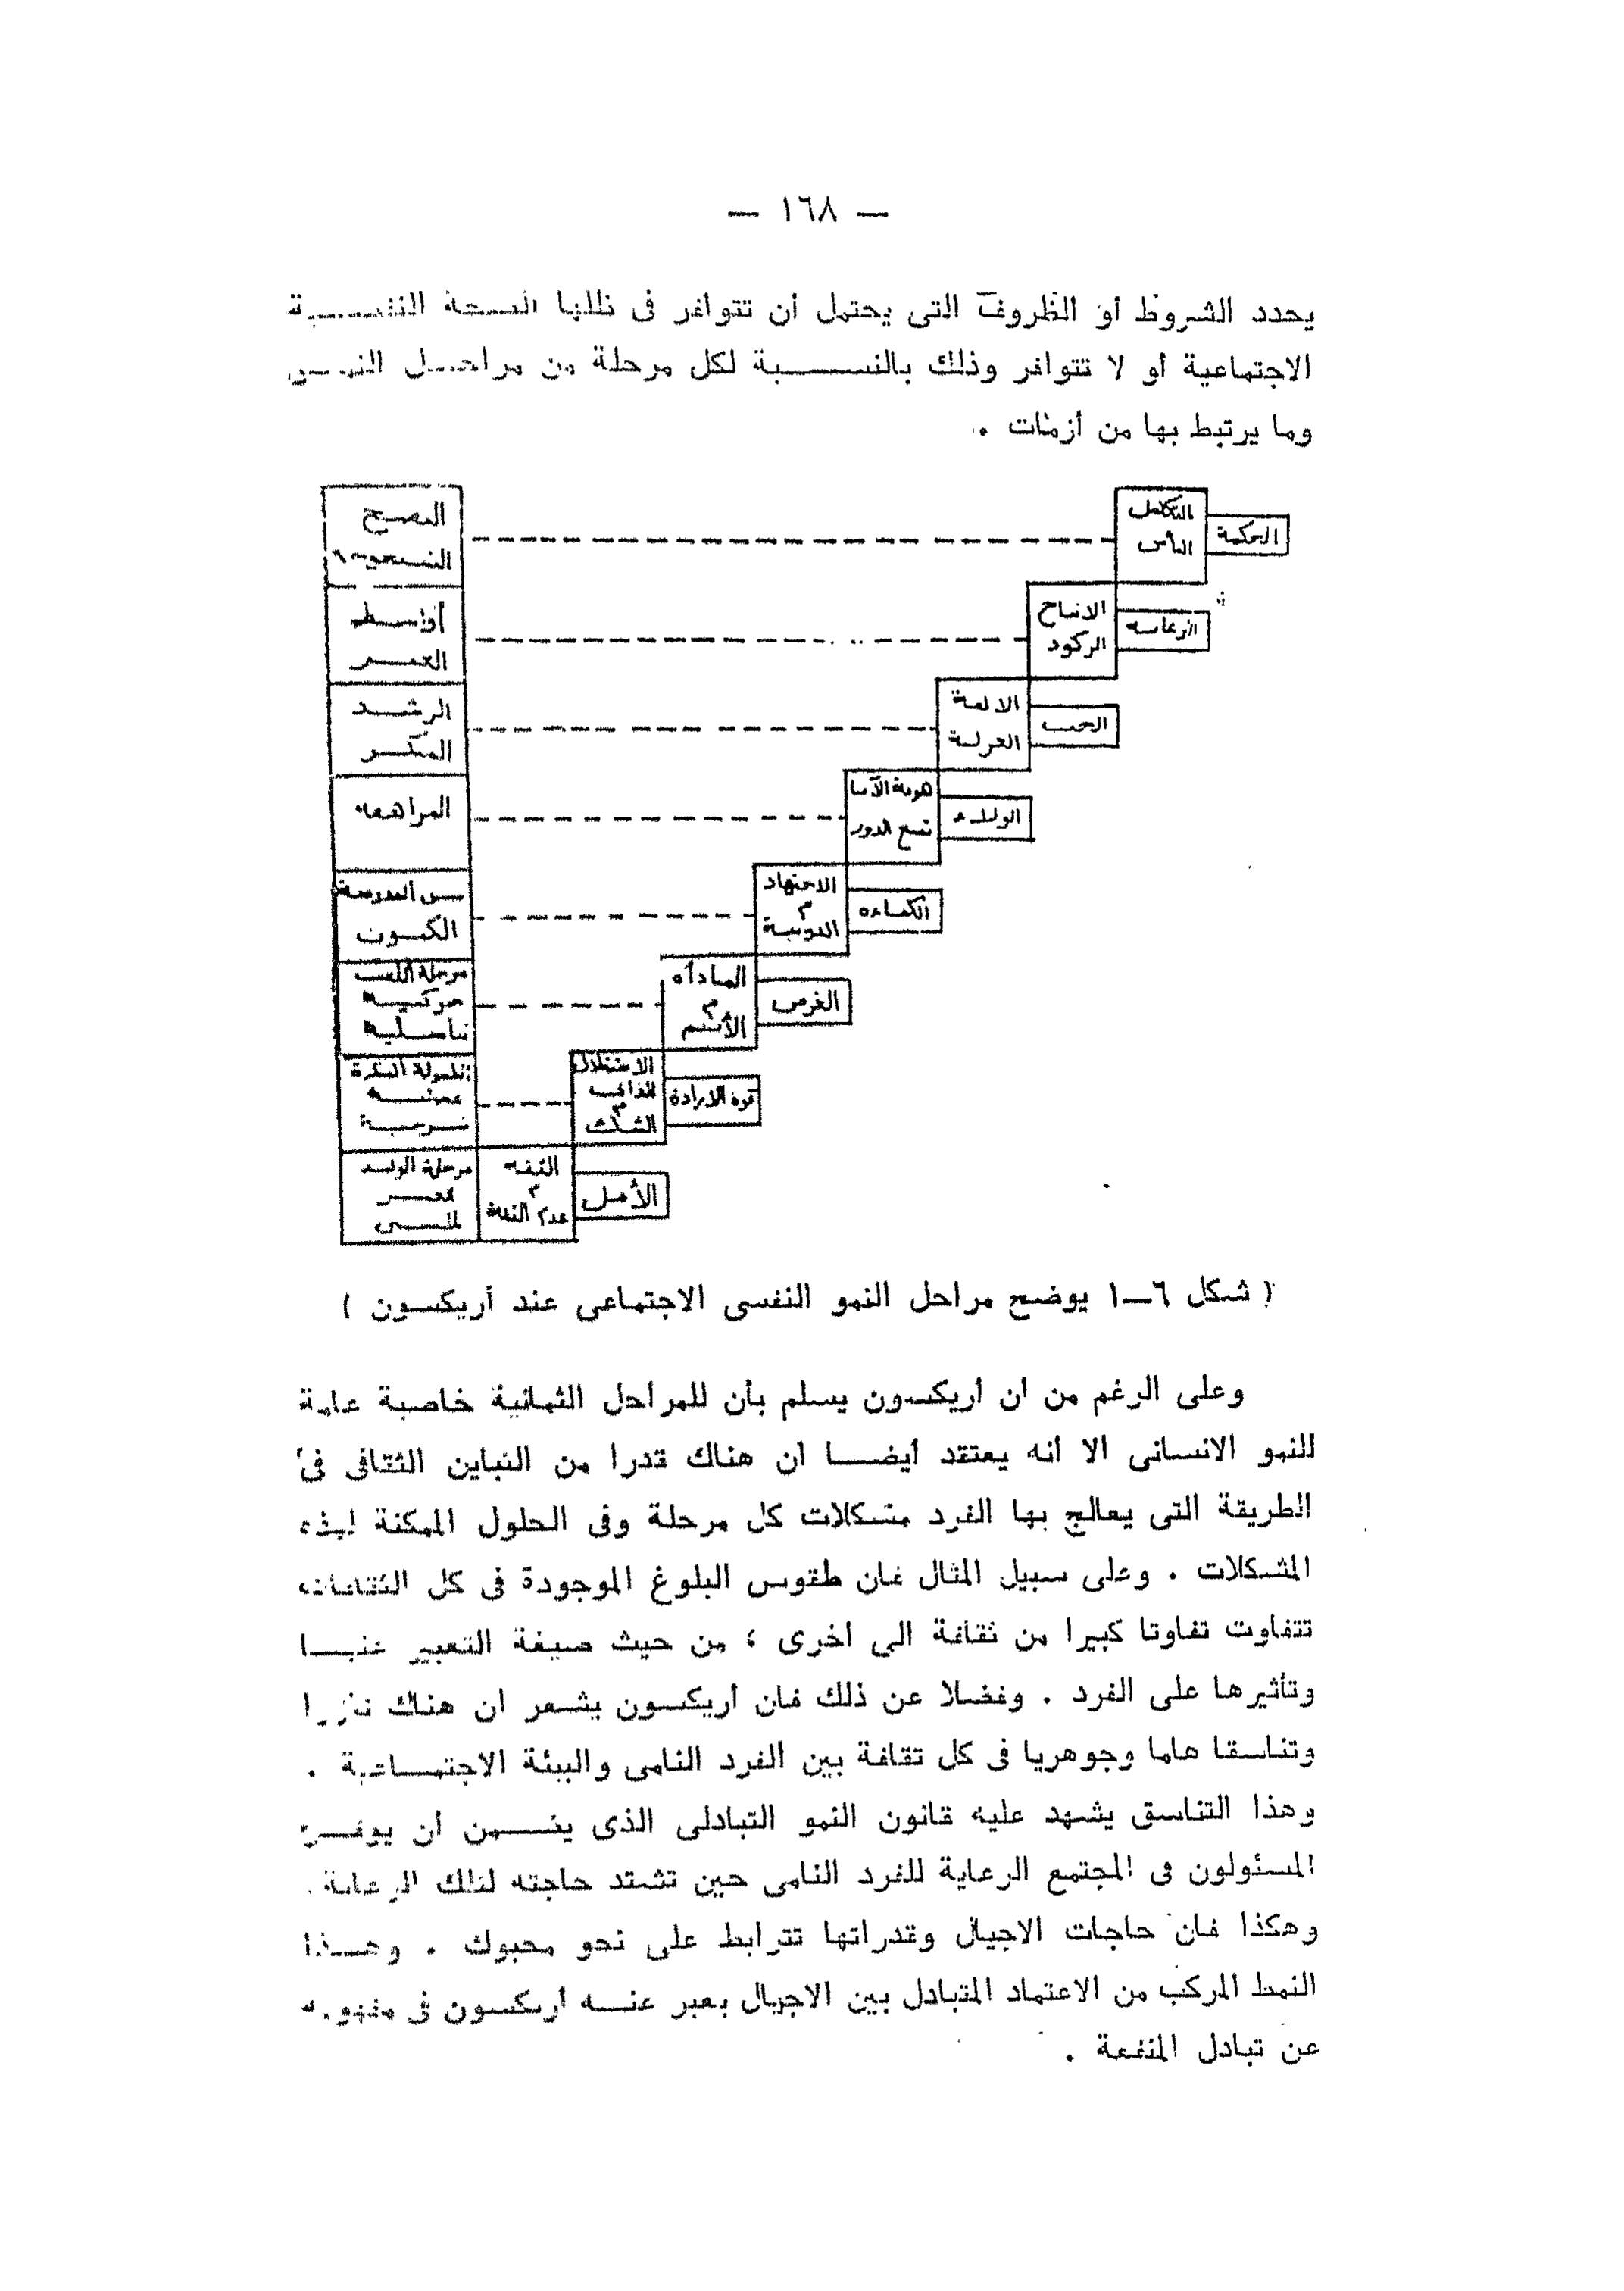 — ١٦٨ —
يحدد الشروط أو الظروف التى يحتمل أن تتوافر فى ظلها الصحة النفسـية
الاجتماعية أو لا تتوافر وذلك بالنسـبة لكل مرحلة من مراحـل النمـو
وما يرتبط بها من أزمات .
النضج
التكامل
اليأس
الحكمة
أواسـط
العمـر
الانتاج
الركود
الرعاية
الرشـد
المبكـر
الالفة
العزلة
الحب
المراهقة
هوية الأنا
تميع الدور
الولاء
سن المدرسة
الكمون
الاجتهاد
م
الدونية
الكفاءة
مرحلة اللعب
حركيـة
تناسـلية
المبادأة
م
الأثـم
الغرض
الطفولة المبكرة
شرجيـة
الاستقلال
الذاتى
م
الشـك
قوة الارادة
مرحلة الوليـد
الثقة
م
عدم الثقة
الأمـل
( شكل ٦—١ يوضح مراحل النمو النفسى الاجتماعى عند أريكسون )
وعلى الرغم من أن أريكسون يسلم بأن للمراحل الثمانية خاصية عامة
للنمو الانسانى الا أنه يعتقد أيضـا أن هناك قدرا من التباين الثقافى فى
الطريقة التى يعالج بها الفرد مشكلات كل مرحلة وفى الحلول الممكنة لهذه
المشكلات . وعلى سبيل المثال فان طقوس البلوغ الموجودة فى كل الثقافات
تتفاوت تفاوتا كبيرا من ثقافة الى أخرى ، من حيث صيغة التعبير عنهـا
وتأثيرها على الفرد . وفضلا عن ذلك فان أريكسون يشعر أن هناك
وتناسقا هاما وجوهريا فى كل ثقافة بين الفرد النامى والبيئة الاجتمـاعية .
وهذا التناسق يشهد عليه قانون النمو التبادلى الذى يضـمن أن يوفـر
المسئولون فى المجتمع الرعاية للفرد النامى حين تشتد حاجته لتلك الرعاية .
وهكذا فان حاجات الاجيال وقدراتها تترابط على نحو محبوك . وهـذا
النمط المركب من الاعتماد المتبادل بين الاجيال يعبر عنـه أريكسون فى مفهومه
عن تبادل المنفعة .